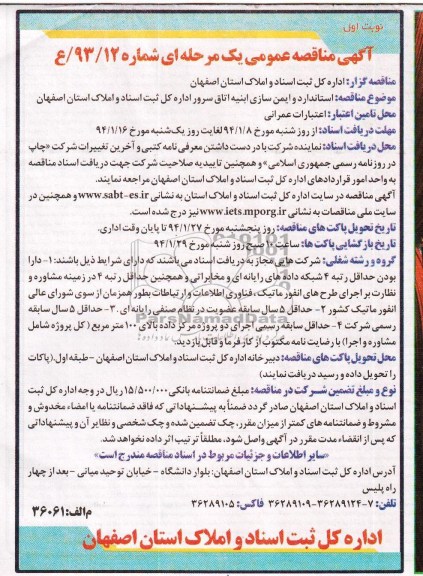 نوبت اول
آگهی مناقصه عمومی یک مرحله ای شماره ۹۳/۱۲/ع
مناقصه گزار: اداره کل ثبت اسناد و املاک استان اصفهان
موضوع مناقصه: استاندارد و ایمن سازی ابنیه اتاق سرور اداره کل ثبت اسناد و املاک استان اصفهان
محل تامین اعتبار: اعتبارات عمرانی
مهلت دریافت اسناد: از روز شنبه مورخ ۹۴/۱/۸ لغایت روز یک‌شنبه مورخ ۹۴/۱/۱۶
محل دریافت اسناد: نماینده شرکت با در دست داشتن معرفی نامه کتبی و آخرین تغییرات شرکت «چاپ
در روزنامه رسمی جمهوری اسلامی» و همچنین تاییدیه صلاحیت شرکت جهت دریافت اسناد مناقصه
به واحد امور قراردادهای اداره کل ثبت اسناد و املاک استان اصفهان مراجعه نمایند.
آگهی مناقصه در سایت اداره کل ثبت اسناد و املاک استان به نشانی www.sabt-es.ir و همچنین در
سایت ملی مناقصات به نشانی www.iets.mporg.ir نیز درج شده است.
تاریخ تحویل پاکت های مناقصه: روز پنجشنبه مورخ ۹۴/۱/۲۷ تا پایان وقت اداری.
تاریخ بازگشایی پاکت ها: ساعت ۱۰ صبح روز شنبه مورخ ۹۴/۱/۲۹
گروه و رشته شغلی: شرکت های مجاز به دریافت اسناد می باشند که دارای شرایط ذیل باشند: ۱- دارا
بودن حداقل رتبه ۴ شبکه داده های رایانه ای و مخابراتی و همچنین حداقل رتبه ۴ در زمینه مشاوره و
نظارت بر اجرای طرح های انفورماتیک، فناوری اطلاعات و ارتباطات بطور همزمان از سوی شورای عالی
انفورماتیک کشور ۲- حداقل ۵ سال سابقه عضویت در نظام صنفی رایانه ای ۳- حداقل ۵ سال سابقه
رسمی شرکت ۴- حداقل سابقه رسمی اجرای دو پروژه مرکز داده بالای ۱۰۰ متر مربع (کل پروژه شامل
مشاوره و اجرا) با رضایت نامه مکتوب از کارفرما و قابل بازدید.
محل تحویل پاکت های مناقصه: دبیرخانه اداره کل ثبت اسناد و املاک استان اصفهان - طبقه اول. (پاکات
را تحویل داده و رسید دریافت نمایند)
نوع و مبلغ تضمین شرکت در مناقصه: مبلغ ضمانتنامه بانکی ۱۵/۵۰۰/۰۰۰ ریال در وجه اداره کل ثبت
اسناد و املاک استان اصفهان صادر گردد ضمناً به پیشنهاداتی که فاقد ضمانتنامه یا امضاء مخدوش و
مشروط و ضمانتنامه های کمتر از میزان مقرر، چک تضمین شده و چک شخصی و نظایر آن و پیشنهاداتی
که پس از انقضاء مدت مقرر در آگهی واصل شود، مطلقاً ترتیب اثر داده نخواهد شد.
«سایر اطلاعات و جزئیات مربوط در اسناد مناقصه مندرج است»
آدرس اداره کل ثبت اسناد و املاک استان اصفهان: بلوار دانشگاه - خیابان توحید میانی - بعد از چهار
راه پلیس
تلفن: ۷-۳۶۲۸۹۱۲۴-۳۶۲۸۹۱۰۹ فاکس: ۳۶۲۸۹۱۰۵
م الف: ۳۶۰۶۱
اداره کل ثبت اسناد و املاک استان اصفهان
ParsNamadData